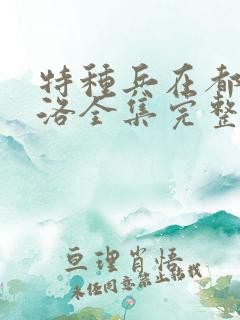 特种兵在都
洛全集完整
亘理肖恬
未经同意禁止转载